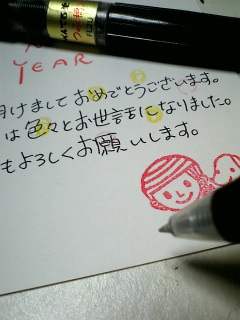 YEAR
明けましておめでとうございます。
は色々とお世話になりました。
もよろしくお願いします。